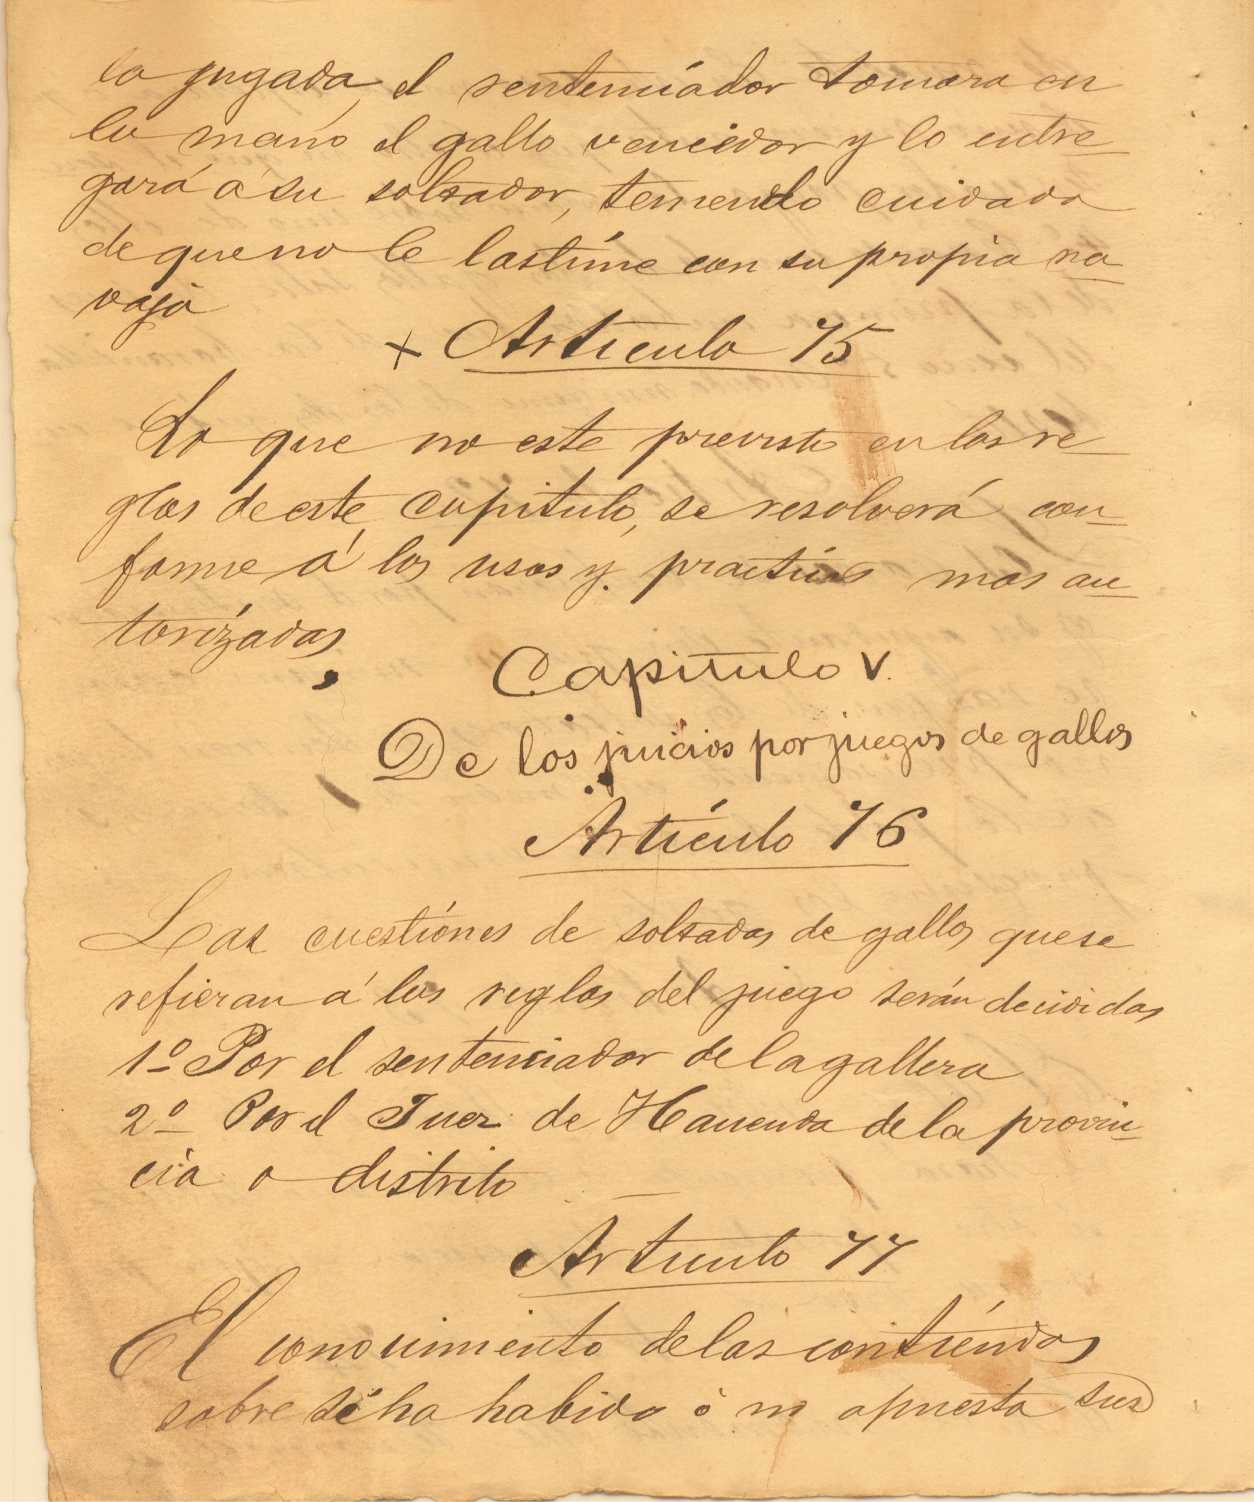 la jugada, el sentenciador tomara en
la mano el gallo vencedor y lo entre-
gará á su soltador, teniendo cuidado
de que no le lastime con su propia na-
vaja
+ Artículo 75
Lo que no este previsto en las re-
glas de este capitulo, se resolverá con-
forme á los usos y practicas mas au-
torizadas
Capitulo V.
De los juicios por juegos de gallos
Artículo 76
Las cuestiónes de soltadas de gallos que se
refieran á las reglas del juego serán decididas
1º Por el sentenciador de la gallera
2º Por el Juez de Hacienda de la provin-
cia o distrito
Artículo 77
El conocimiento de las contiendas
sobre si ha habido ó no apuesta sus